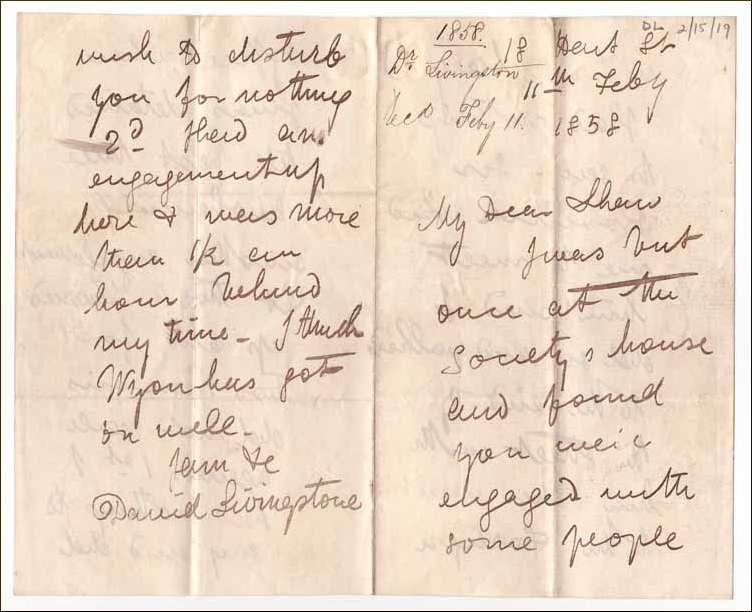 DL 2/15/19
1858.
Dr Livingston
Recd Feby 11.
18 Hart St
11th Feby
1858
My Dear Shaw
I was but
once at the
Society s house
and found
you were
engaged with
some people
wish to disturb
you for nothing
2d I had an
engagement up
here & was more
than 1/2 an
hour behind
my time - I think
Wyon has got
on well -
I am &c
David Livingstone